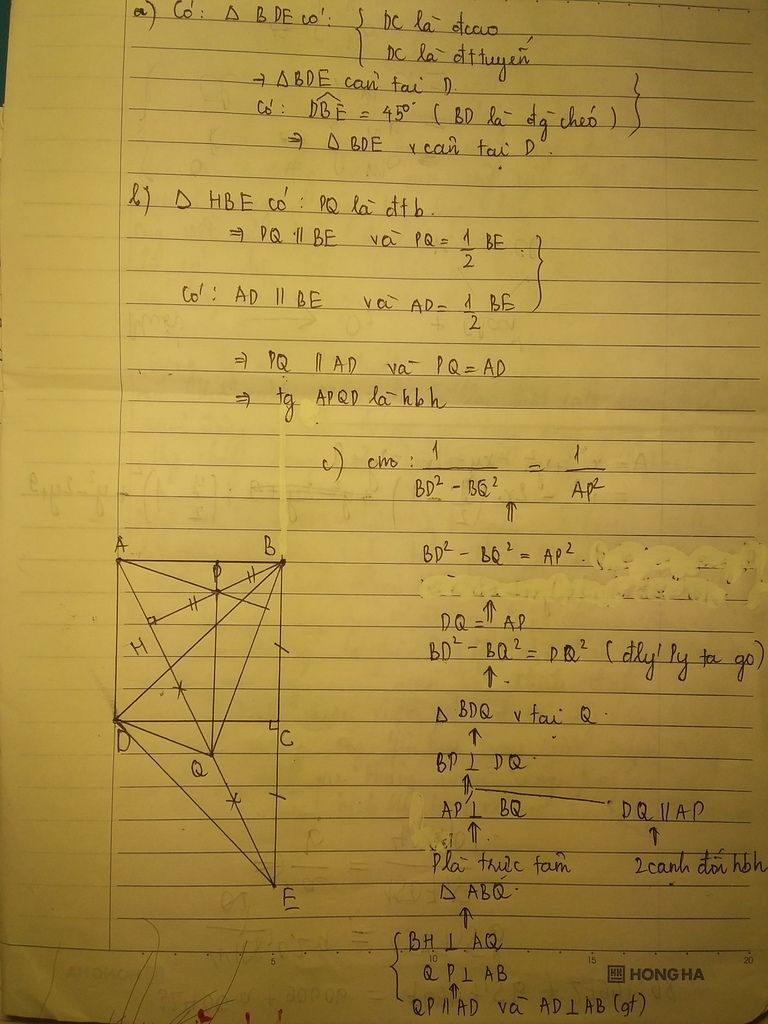 a) Có: Δ BDE có: { DC là đcao
DC là đttuyến
⇒ ΔBDE cân tại D
Có: DBE = 45° ( BD là đg chéo )
⇒ Δ BDE v cân tại D.
b) Δ HBE có: PQ là đtb.
⇒ PQ // BE và PQ = 1/2 BE
Có: AD // BE và AD = 1/2 BE
⇒ PQ // AD và PQ = AD
⇒ tg APQD là hbh
c) cm: 1/(BD² - BQ²) = 1/AP²
⇑
BD² - BQ² = AP²
⇑
DQ = AP
BD² - BQ² = DQ² ( đlý Py ta go)
⇑
Δ BDQ v tại Q.
⇑
BP ⊥ DQ
⇑
AP ⊥ BQ DQ // AP
⇑ ⇑
P là trực tâm 2 cạnh đối hbh
Δ ABQ
⇑
{ BH ⊥ AQ
QP ⊥ AB
⇑
QP // AD và AD ⊥ AB (gt)
A B
P
H
D C
Q
E
5 10 15 20
HONG HA